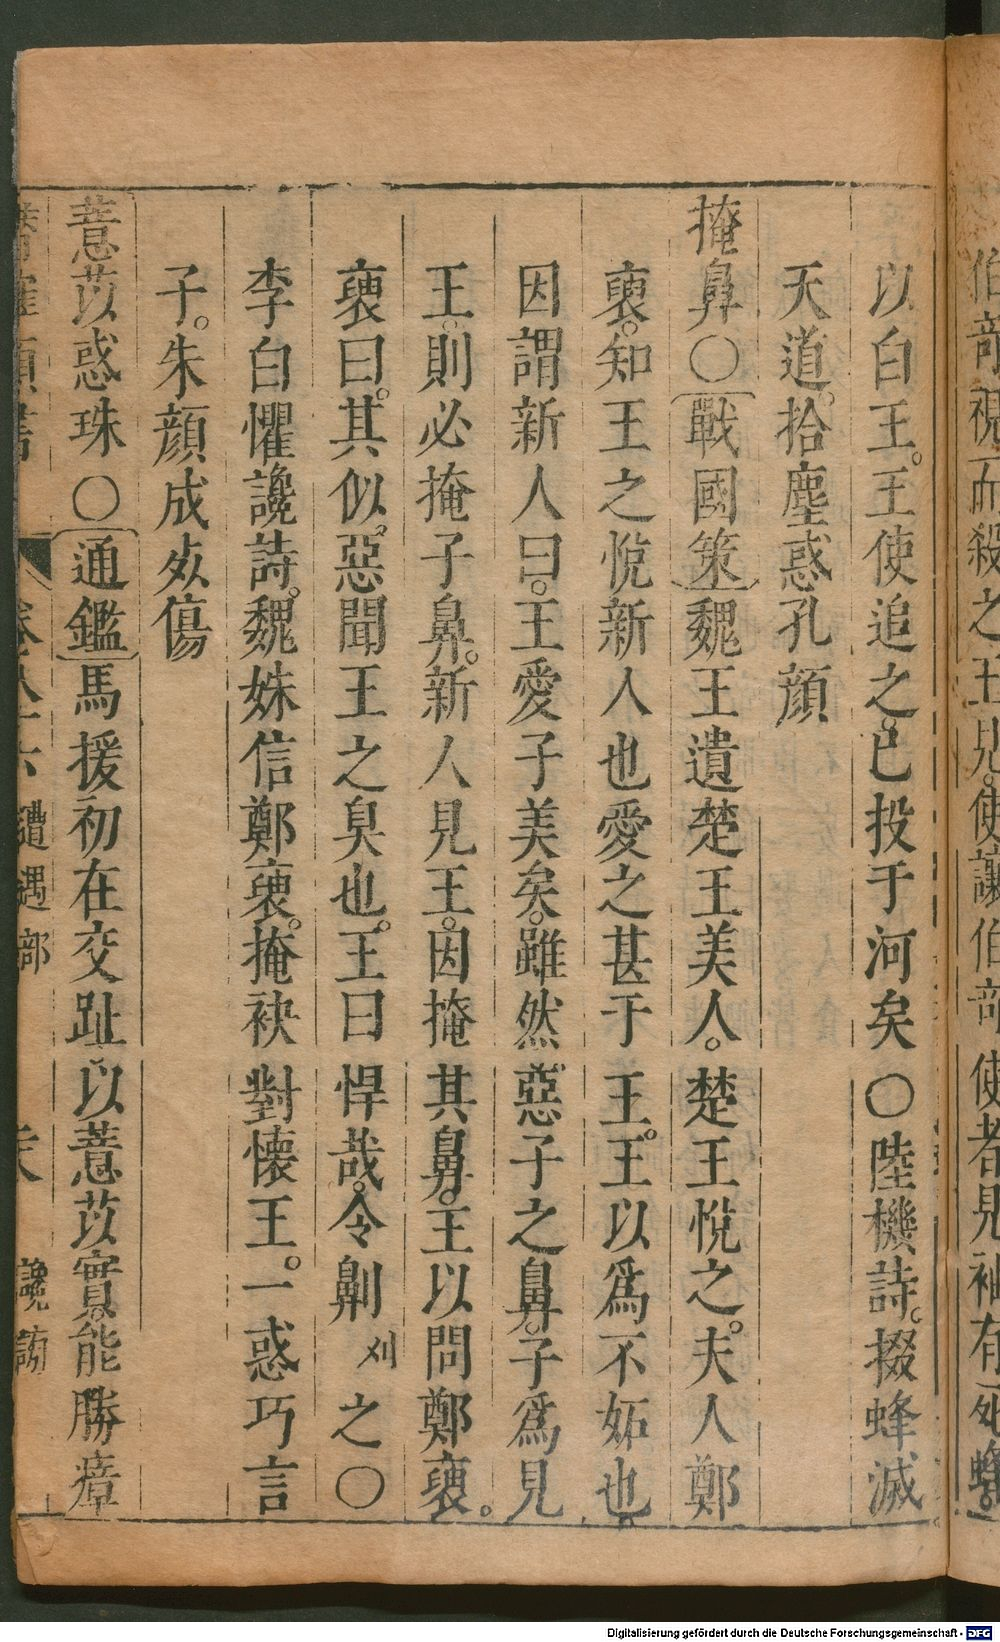 伯竒視而殺之王見使讓伯竒使者見袖有死蜂
以白王。王使追之。已投于河矣○陸機詩。掇蜂滅
天道。拾塵惑孔顔
掩鼻○戰國策魏王遺楚王美人。楚王悅之。夫人鄭
褏。知王之悅新人也愛之甚于王。王以爲不妬也
因謂新人曰。王愛子美矣。雖然惡子之鼻。子爲見
王。則必掩子鼻。新人見王。因掩其鼻。王以問鄭褏。
褏曰。其似。惡聞王之臭也。王曰悍哉。令劓刈之○
李白懼讒詩。魏姝信鄭褏。掩袂對懷王。一惑巧言
子。朱顔成死傷
薏苡惑珠○通鑑馬援初在交趾以薏苡實。能勝瘴
遭遇部 讒謗
Digitalisierung gefördert durch die Deutsche Forschungsgemeinschaft - DFG